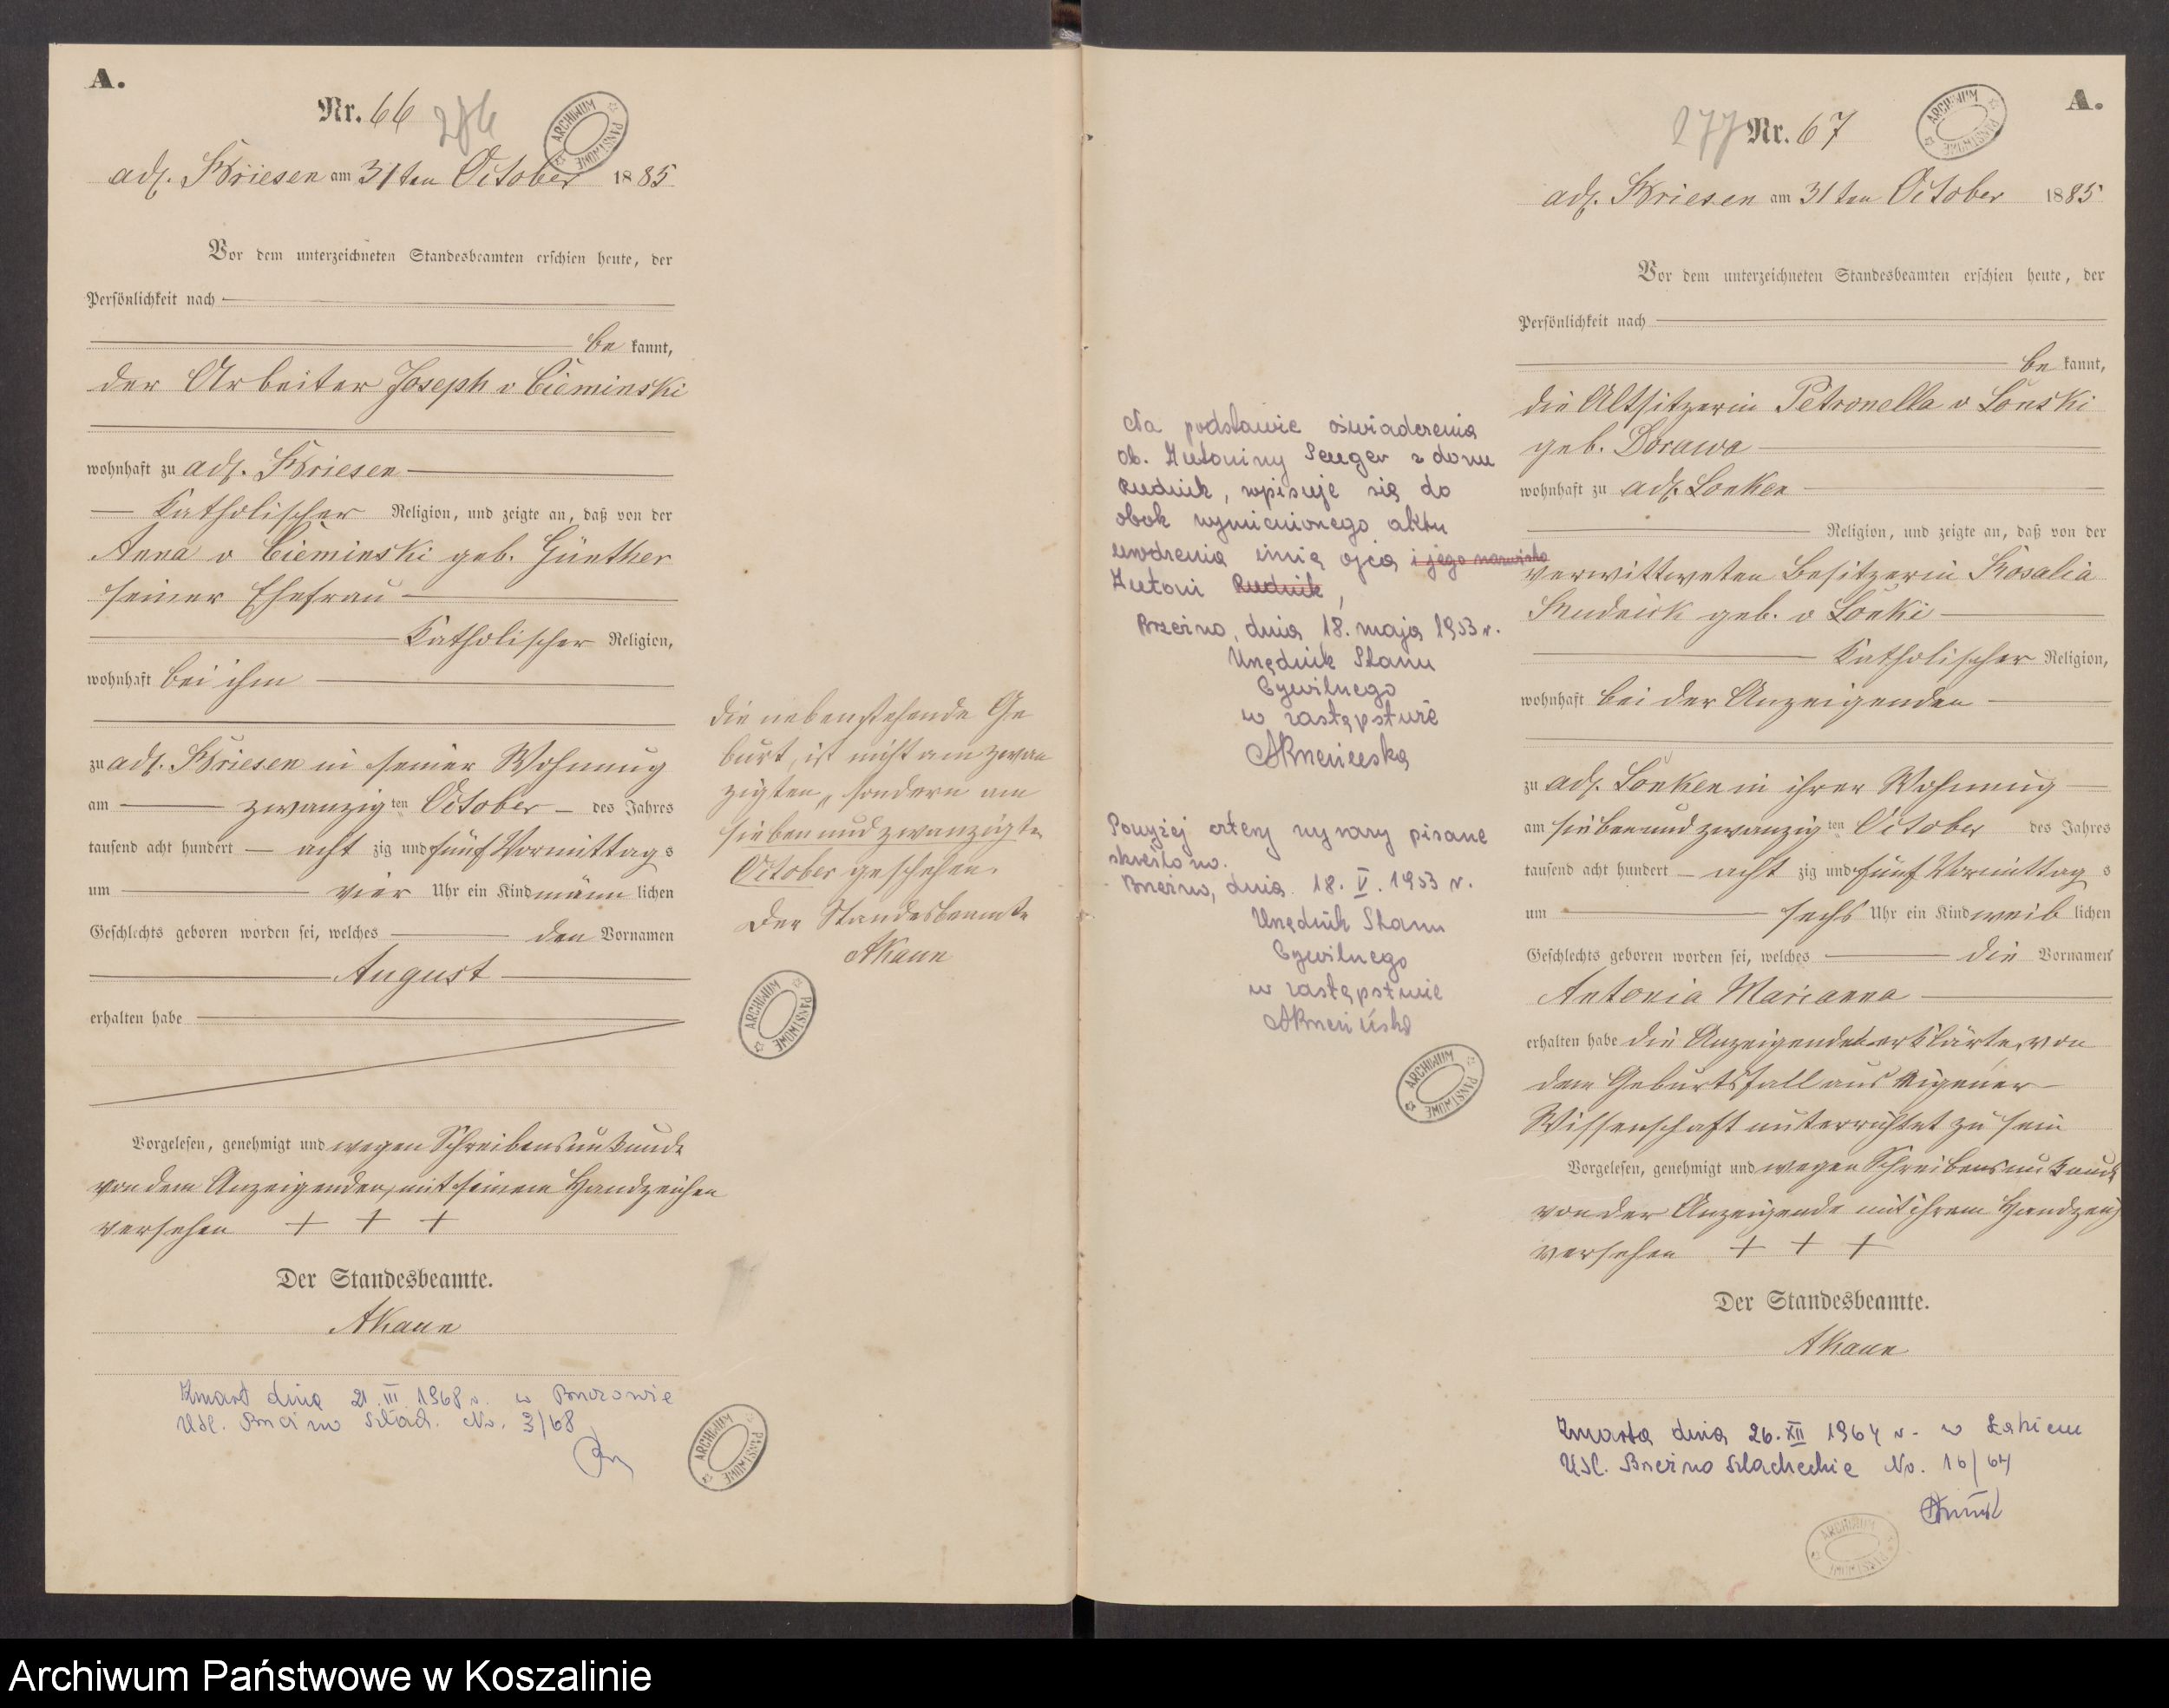 A.
Nr. 66
adl. Briesen am 31ten October 1885
Vor dem unterzeichneten Standesbeamten erschien heute, der
Persönlichkeit nach
be kannt,
der Arbeiter Joseph v Cieminski
wohnhaft zu adl. Briesen
Katholischer Religion, und zeigte an, daß von der
Anna v Cieminski geb. Günther
seiner Ehefrau
Katholischer Religion,
wohnhaft bei ihm
zu adl. Briesen in seiner Wohnung
am zwanzig ten October des Jahres
tausend acht hundert acht zig und fünf Vormittag s
um vier Uhr ein Kind männ lichen
Geschlechts geboren worden sei, welches den Vornamen
August
erhalten habe
Vorgelesen, genehmigt und wegen Schreibensunkunde
von dem Anzeigenden, mit seinem Handzeichen
versehen + + +
Der Standesbeamte.
AKann
Zmarł dnia 21.III 1968 r. w
USC. Nr. 3/68
die nebenstehende Ge
burt, ist nicht am zwan
zigten, sondern am
sieben und zwanzigten
October geschehen.
Der Standesbeamte
AKann
ARCHIWUM PAŃSTWOWE
A.
277 Nr. 67
adl. Briesen am 31ten October 1885
Vor dem unterzeichneten Standesbeamten erschien heute, der
Persönlichkeit nach
be kannt,
die Altsitzerin Petronella v Lonski
geb. Dorawa
wohnhaft zu adl. Lonken
Religion, und zeigte an, daß von der
verwittweten Besitzerin Rosalia
Rudnick geb. v
Katholischer Religion,
wohnhaft bei der Anzeigenden
zu adl. Lonken in ihrer Wohnung
am sieben und zwanzig ten October des Jahres
tausend acht hundert acht zig und fünf Vormittag s
um sechs Uhr ein Kind weib lichen
Geschlechts geboren worden sei, welches die Vornamen
Antonia Marianna
erhalten habe die Anzeigende erklärte, von
dem Geburtsfall aus eigener
Wissenschaft unterrichtet zu sein
Vorgelesen, genehmigt und wegen Schreibensunkunde
von der Anzeigende mit ihrem Handzeich
versehen + + +
Der Standesbeamte.
AKann
Zmarła dnia 26.XII 1964 r. w Łąkiem
USC. Brzeźno Szlacheckie Nr. 16/64
Na podstawie oświadczenia
ob. Antoniny z domu
Rudnik, wpisuje się do
obok wymienionego aktu
urodzenia imię ojca i jego nazwisko
Antoni Rudnik,
Brzeźno, dnia 18. maja 1953 r.
Urzędnik Stanu
Cywilnego
w zastępstwie
Powyżej cztery wyrazy pisane
skreślono.
Brzeźno, dnia 18. V. 1953 r.
Urzędnik Stanu
Cywilnego
w zastępstwie
ARCHIWUM PAŃSTWOWE
Archiwum Państwowe w Koszalinie